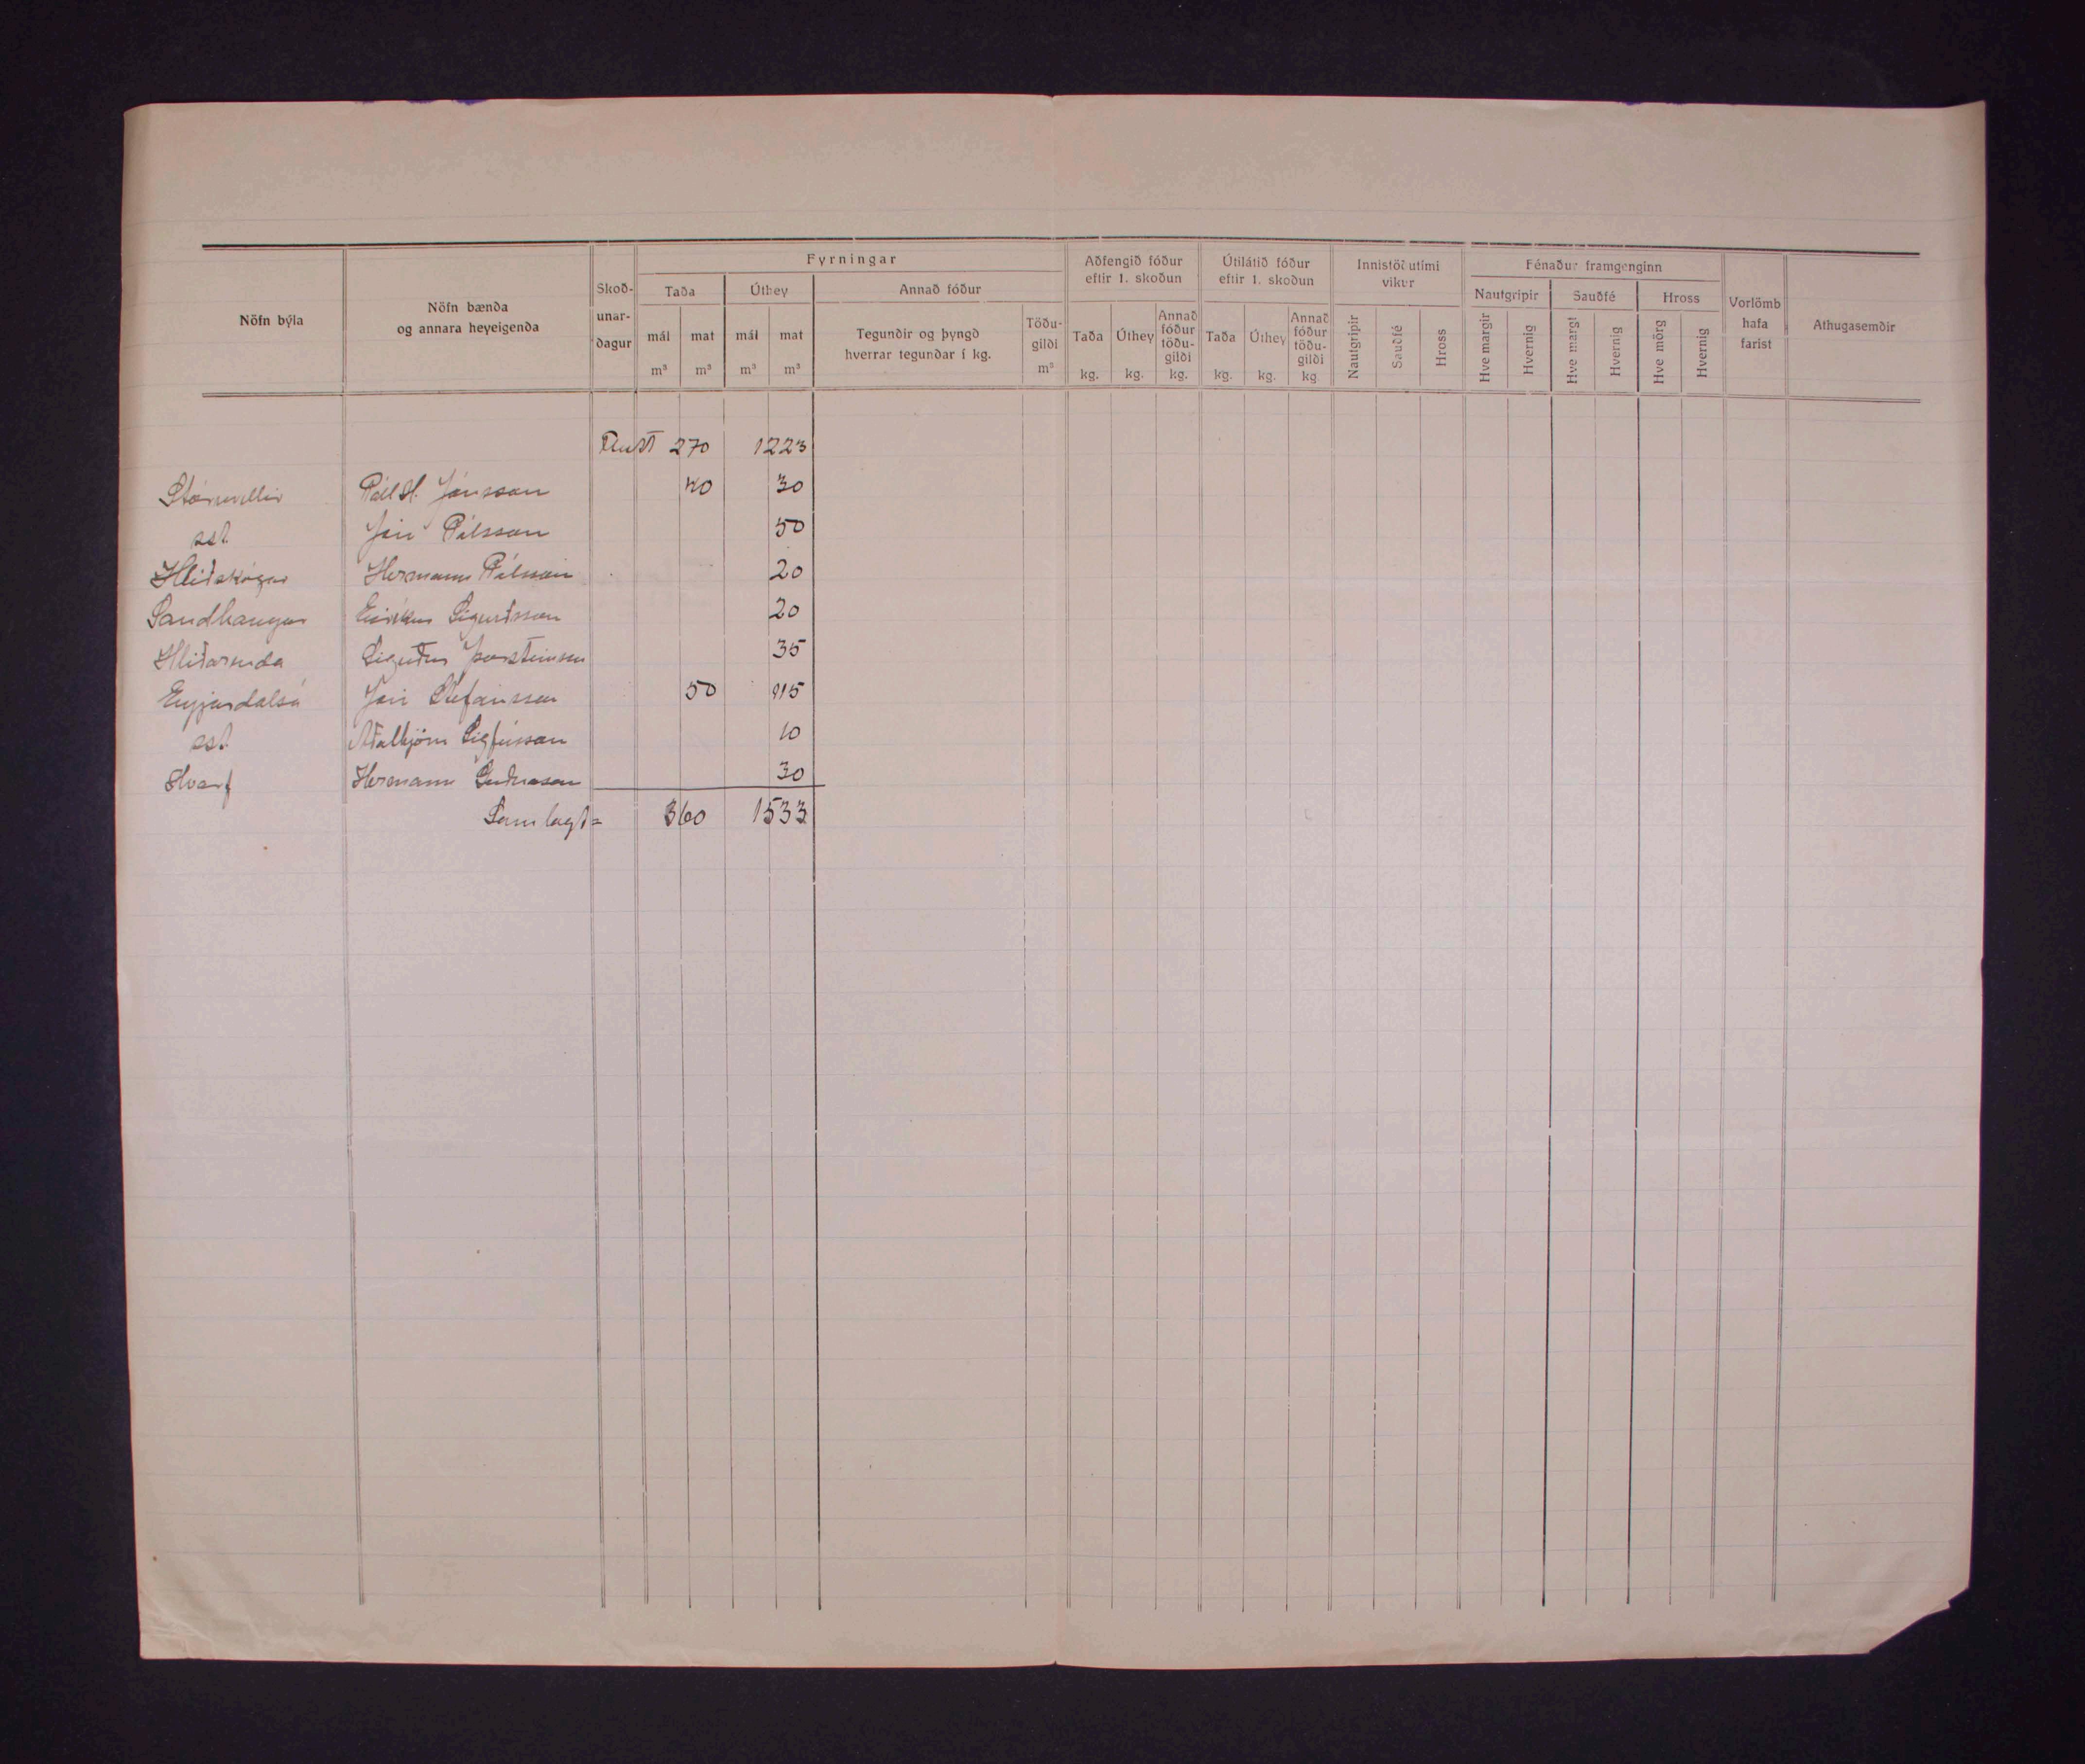 Fyrningar
Aðfengið fóður eftir 1. skoðun
Útilátið fóður eftir 1. skoðun
Innistöðutími vikur
Fénaður framgenginn
Nöfn býla
Nöfn bænda og annara heyeigenda
Skoð-unar-dagur
Taða
Úthey
Annað fóður
Nautgripir
Sauðfé
Hross
Vorlömb hafa farist
Athugasemdir
mál m³
mat m³
mál m³
mat m³
Tegundir og þyngd hverrar tegundar í kg.
Töðu-gildi m³
Taða kg.
Úthey kg.
Annað fóður töðu-gildi kg.
Taða kg.
Úthey kg.
Annað fóður töðu-gildi kg
Nautgripir
Sauðfé
Hross
Hve margir
Hvernig
Hve margt
Hvernig
Hve mörg
Hvernig
270 1223
Stóruvellir Páll H. Jónsson 40 30
sst. Jón Pálsson 50
Hlíðskógar Hermann Pálsson 20
Sandhaugar Eiríkur Sigurðsson 20
Hlíðarenda Sigurður Þorsteinsson 35
Eyjardalsá Jón Stefánsson 50 115
sst. Aðalbjörn Sigfússon 10
Hvarf Hermann Guðnason 30
Samlagt = 360 1533